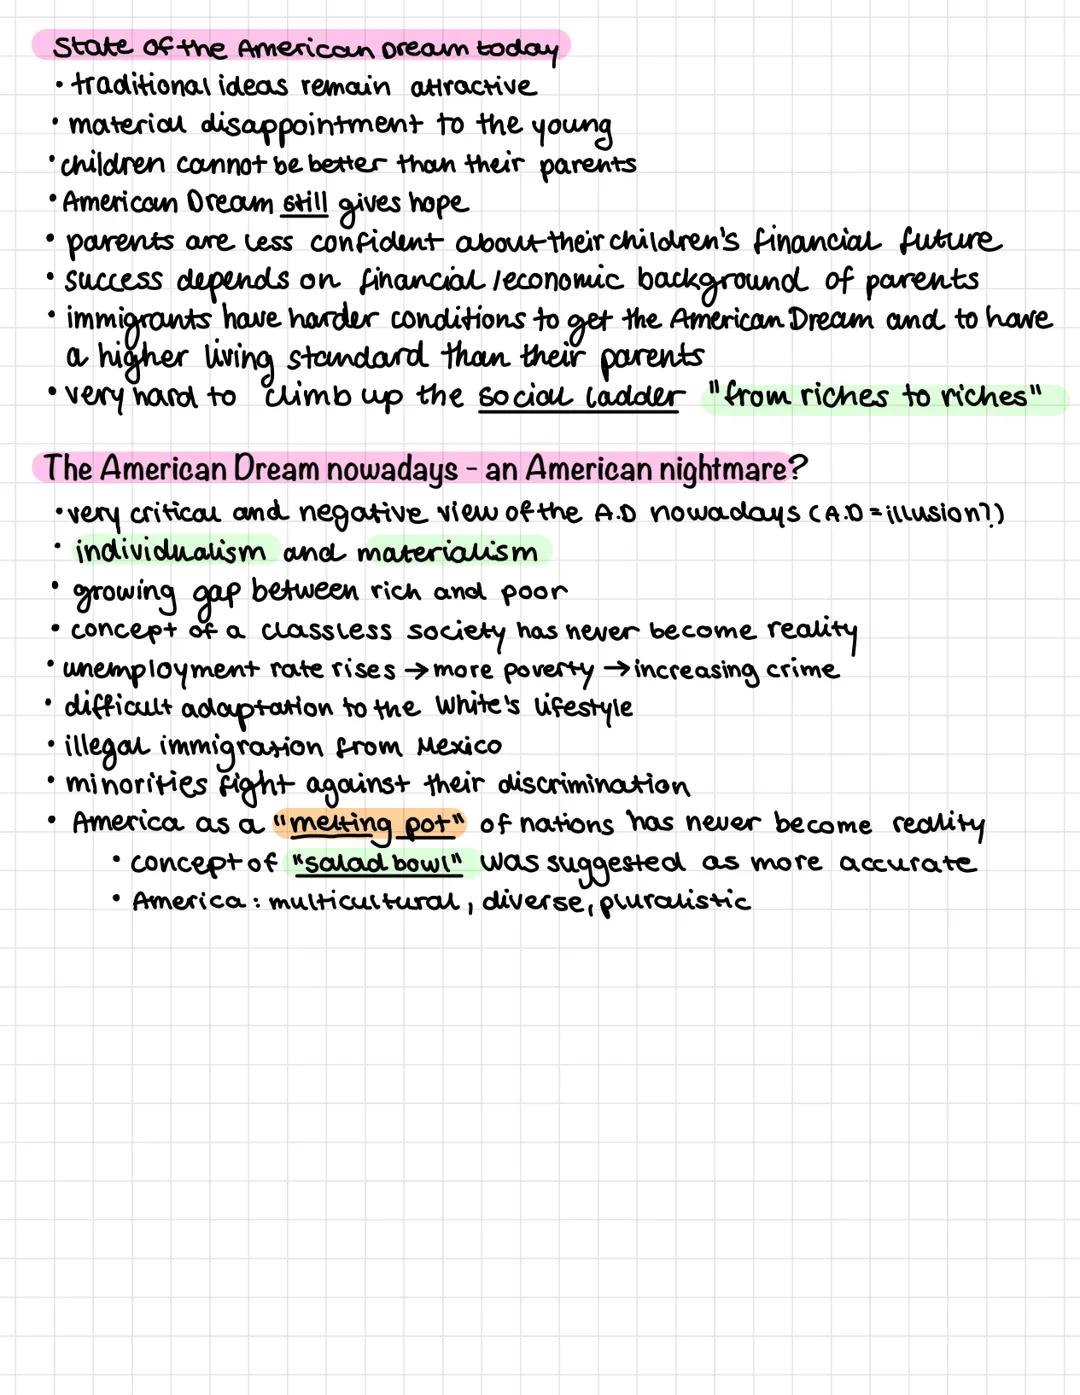 State of the American Dream today
• traditional ideas remain attractive
• material disappointment to the young
• children cannot be better than their parents
• American Dream still gives hope
• parents are less confident about their children's financial future
• success depends on financial/economic background of parents
• immigrants have harder conditions to get the American Dream and to have
a higher living standard than their parents
• very hard to climb up the social ladder "from riches to riches"
The American Dream nowadays - an American nightmare?
• very critical and negative view of the A.D nowadays (A.D = illusion?)
• individualism and materialism
• growing gap between rich and poor
• concept of a classless society has never become reality
• unemployment rate rises → more poverty → increasing crime
• difficult adaptation to the White's lifestyle
• illegal immigration from Mexico
• minorities fight against their discrimination
• America as a "melting pot" of nations has never become reality
• concept of "salad bowl" was suggested as more accurate
• America: multicultural, diverse, pluralistic